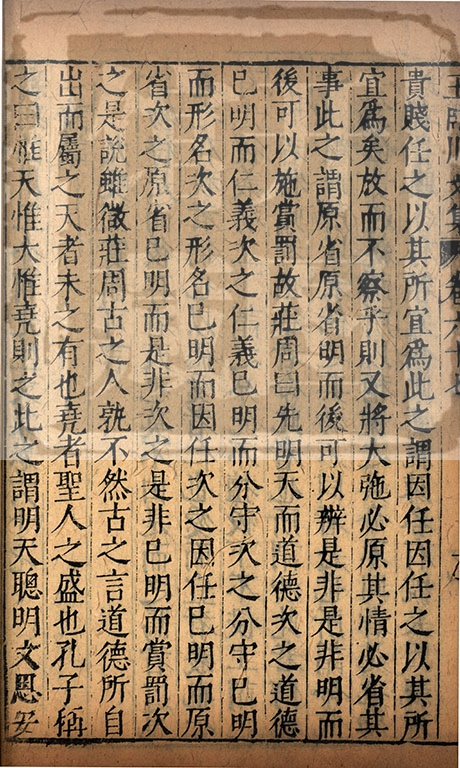 王臨川文集 卷六十七
貴賤任之以其所宜爲此之謂因任因任之以其所
宜爲矣放而不察乎則又將大弛必原其情必省其
事此之謂原省原省明而後可以辨是非是非明而
後可以施賞罰故莊周曰先明天而道德次之道德
已明而仁義次之仁義已明而分守次之分守已明
而形名次之形名已明而因任次之因任已明而原
省次之原省已明而是非次之是非已明而賞罰次
之是說雖微莊周古之人孰不然古之言道德所自
出而屬之天者未之有也堯者聖人之盛也孔子稱
之曰惟天惟大惟堯則之此之謂明天聰明文思安